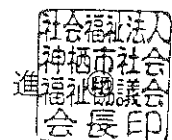 社会福祉法人
神栖市社会
福祉協議会
会長印
進 ㊞